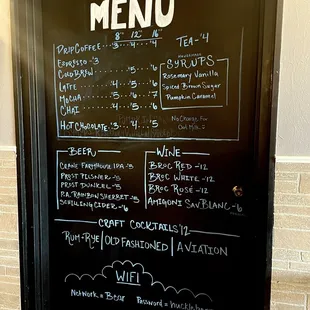 MENU
8oz 12oz 16oz
DRIP COFFEE 3 4 4
TEA - 4
ESPRESSO - 3
COLD BREW 5 6
SYRUPS
LATTE 4 5 6
Rosemary Vanilla
MOCHA 5 6 7
Spiced Brown Sugar
CHAI 4 5
Pumpkin Caramel
HOT CHOCOLATE 3 4 5
No Charge for
Oat Milk
BEER
CRANE FARMHOUSE IPA
PROST PILSNER - 5
PROST DUNKEL - 5
P.A. RAINBOW SHERBET - 5
SCHILLING CIDER - 6
WINE
BROC RED - 12
BROC WHITE - 12
BROC ROSÉ - 12
AMIGONI SAV BLANC - 6
CRAFT COCKTAILS 12
RUM-RYE | OLD FASHIONED | AVIATION
WIFI
Network = Bear Password =